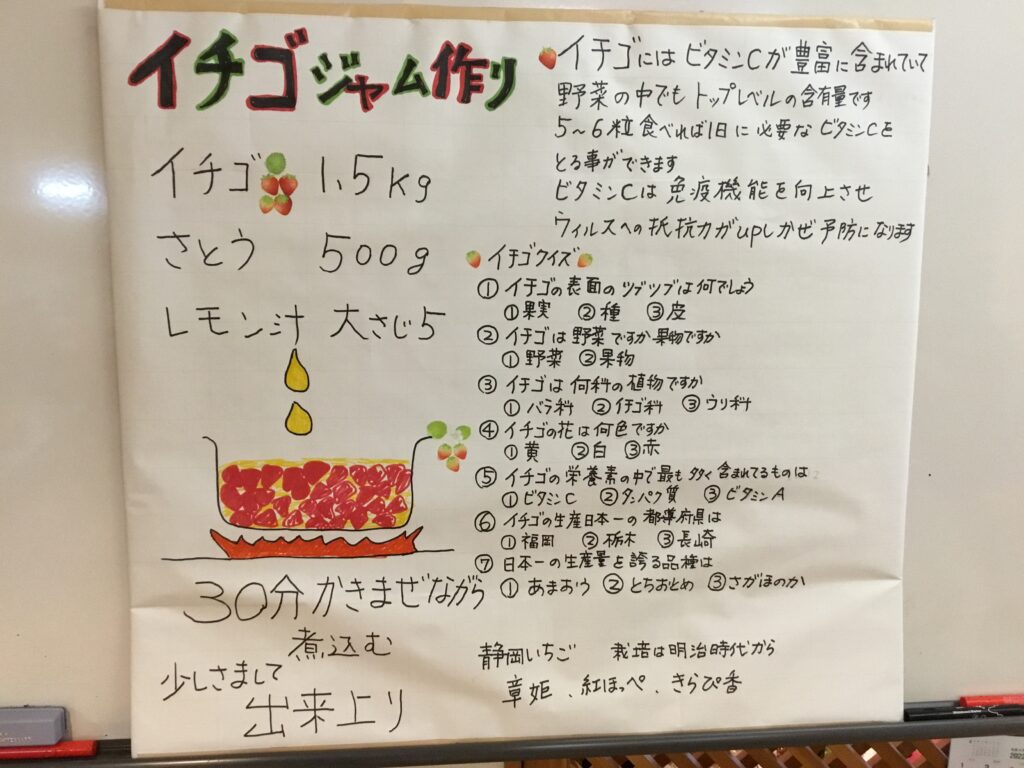 イチゴジャム作り
イチゴ 1.5kg
さとう 500g
レモン汁 大さじ5
30分かきまぜながら
煮込む
少しさまして
出来上り
イチゴにはビタミンCが豊富に含まれていて
野菜の中でもトップレベルの含有量です
5〜6粒食べれば1日に必要なビタミンCを
とる事ができます
ビタミンCは免疫機能を向上させ
ウィルスへの抵抗力がupしかぜ予防になります
イチゴクイズ
① イチゴの表面のツブツブは何でしょう
①果実 ②種 ③皮
② イチゴは野菜ですか果物ですか
① 野菜 ②果物
③ イチゴは何科の植物ですか
① バラ科 ②イチゴ科 ③ウリ科
④ イチゴの花は何色ですか
①黄 ②白 ③赤
⑤ イチゴの栄養素の中で最も多く含まれてるものは
①ビタミンC ②タンパク質 ③ビタミンA
⑥ イチゴの生産日本一の都導府県は
①福岡 ②栃木 ③長崎
⑦ 日本一の生産量を誇る品種は
① あまおう ② とちおとめ ③さがほのか
静岡いちご 栽培は明治時代から
章姫、紅ほっぺ、きらぴ香